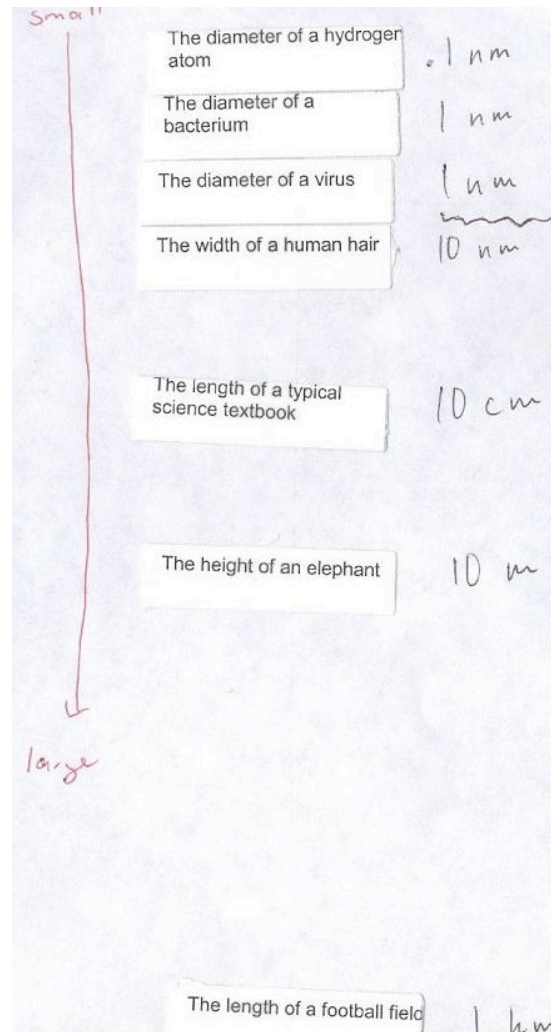 small
The diameter of a hydrogen
atom
.1 nm
The diameter of a
bacterium
1 nm
The diameter of a virus
1 nm
The width of a human hair
10 nm
The length of a typical
science textbook
10 cm
The height of an elephant
10 m
large
The length of a football field
1